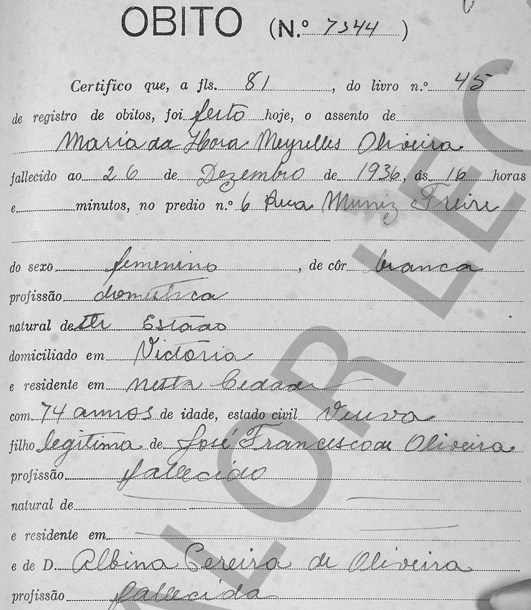 OBITO (N.º 7344)
Certifico que, a fls. 81, do livro n.º 45
de registro de obitos, foi feito hoje, o assento de
Maria da Hora Meyrelles Oliveira
fallecido ao 26 de Dezembro de 1936, ás 16 horas
e minutos, no predio n.º 6 Rua Muniz Freire
do sexo femenino, de côr branca
profissão domestica
natural deste Estado
domiciliado em Victória
e residente em nesta Cedade
com 74 annos de idade, estado civil Viuva
filho legitima de José Francisco de Oliveira
profissão fallecido
natural de
e residente em
e de D. Albina Pereira de Oliveira
profissão fallecida
VALOR LEG